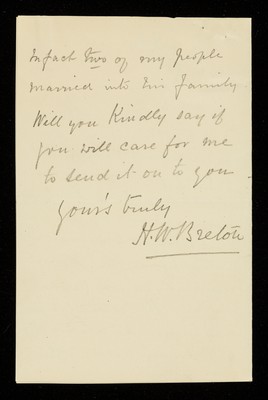 Infact two of my people
married into his family
Will you Kindly say if
you will care for me
to send it on to you
your's truly
H. W. Breton